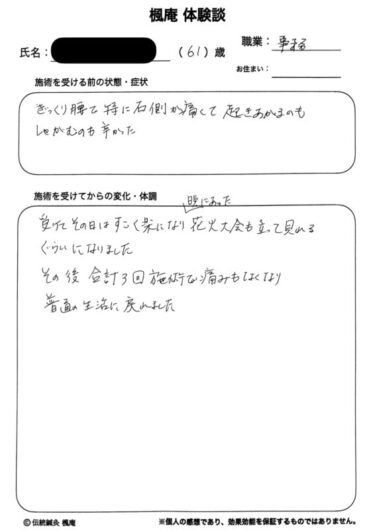 楓庵 体験談
氏名： （61）歳
職業：事務
お住まい：
施術を受ける前の状態・症状
ぎっくり腰で 特に右側が痛くて 起きあがるのも
しゃがむのも辛かった
施術を受けてからの変化・体調
夜にあった
受けて その日は すごく楽になり 花火大会も立って見れる
ぐらいになりました
その後 合計3回施術で痛みもなくなり
普通の生活に戻れました
© 伝統鍼灸 楓庵
※個人の感想であり、効果効能を保証するものではありません。